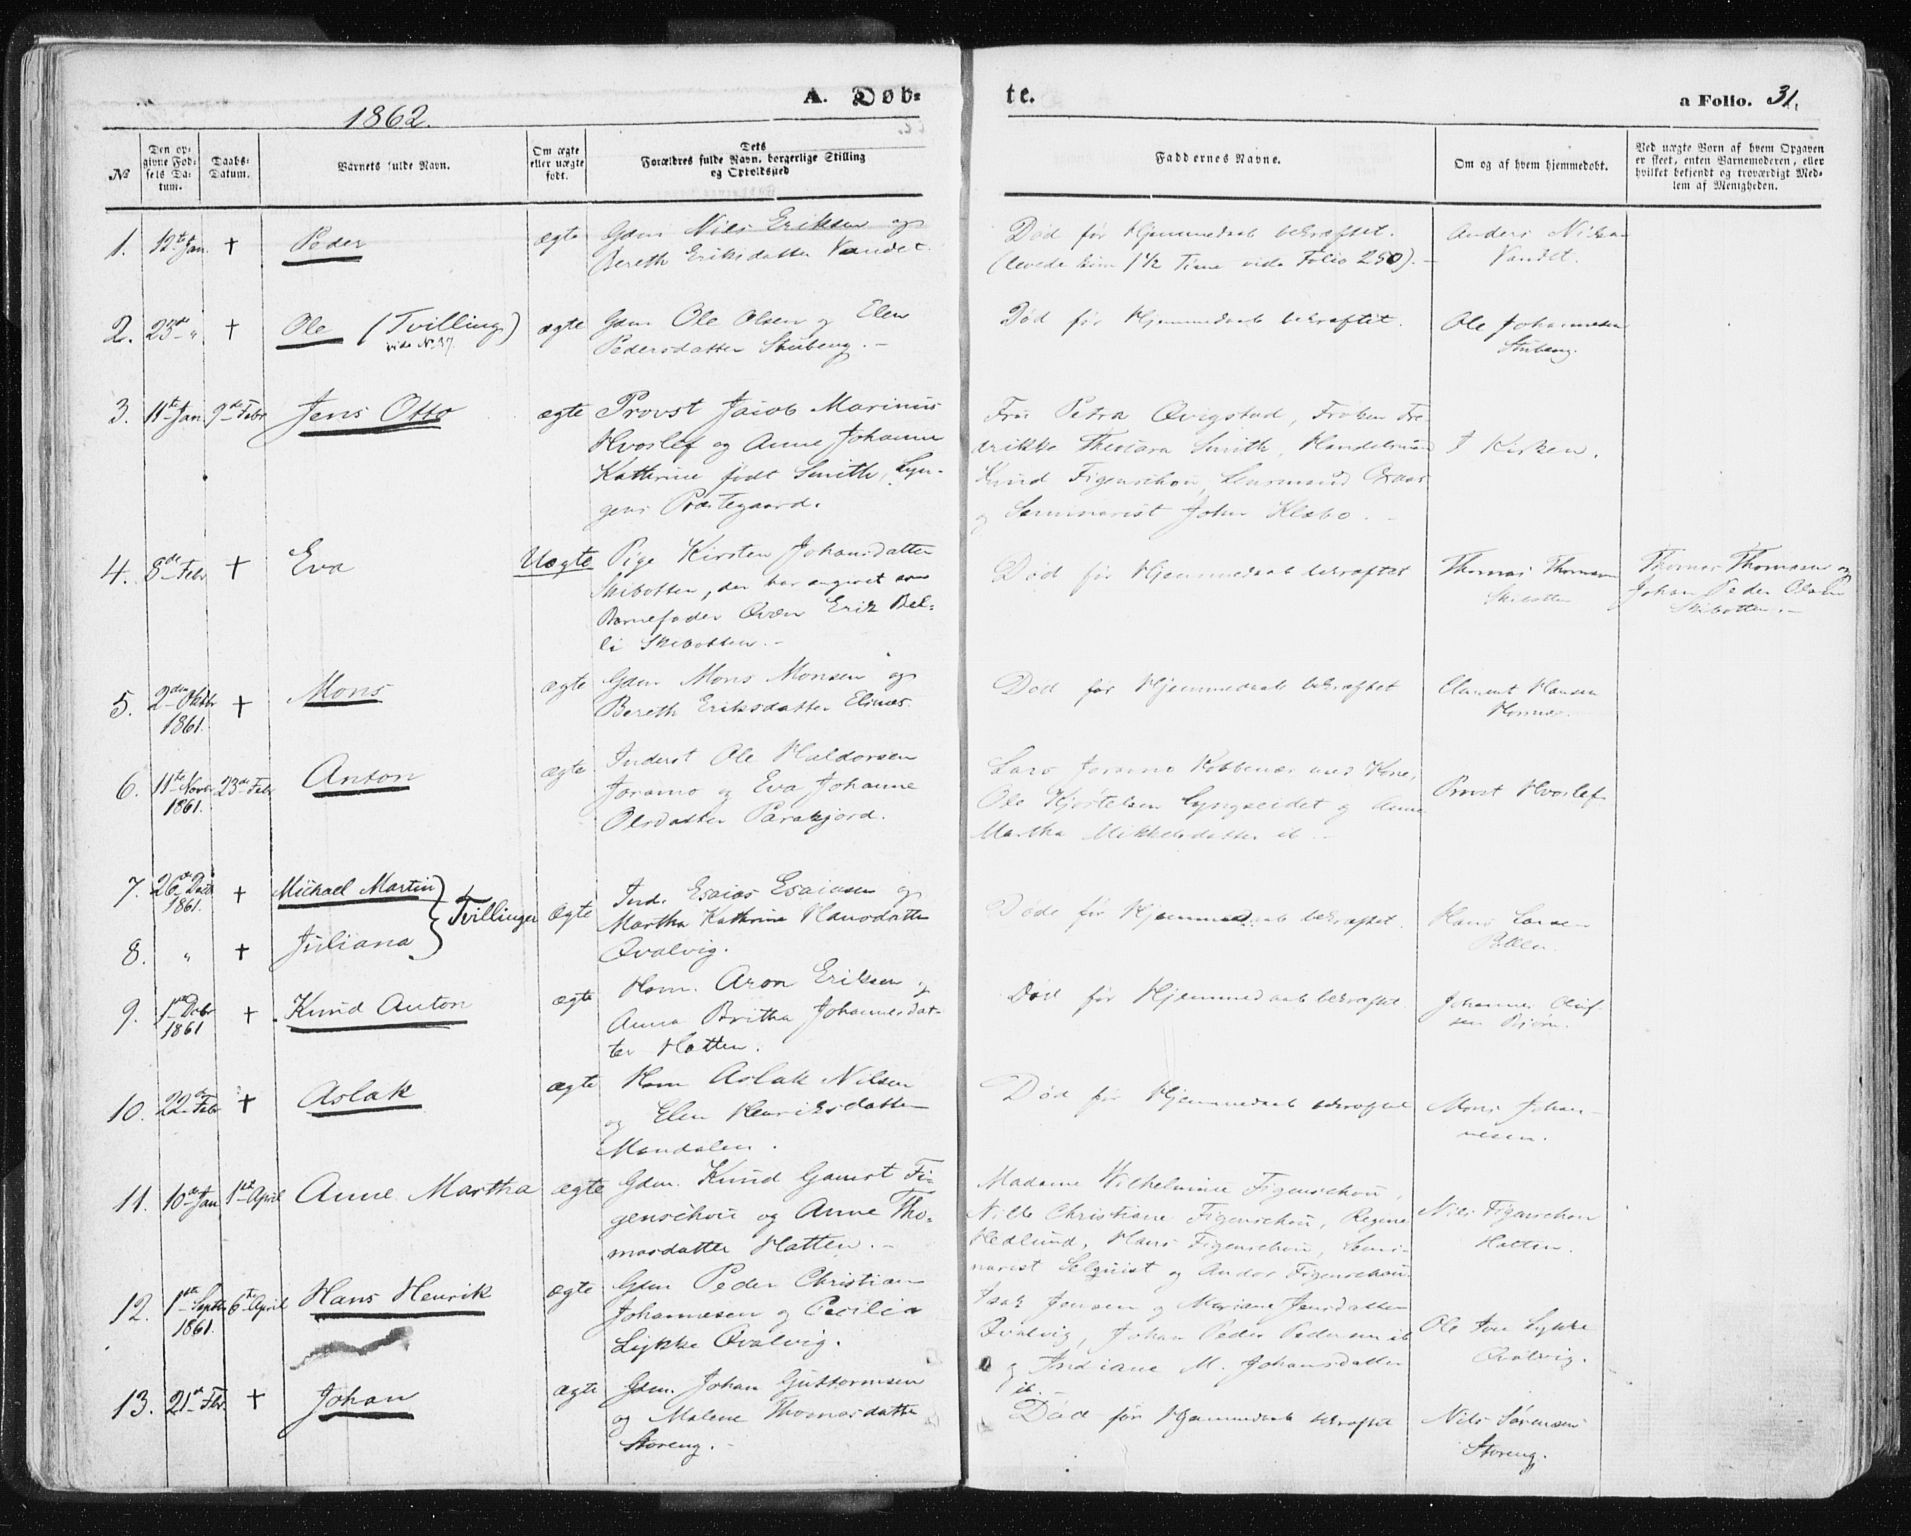 1862.
A. Døb-
te.
a Folio. 31.
№
Den op-
givne Fød-
sels Da-
tum.
Daabs-
Datum.
Barnets fulde Navn.
Om ægte
eller uægte
født.
Dets
Forældres fulde Navn, borgerlige Stilling
og Opholdssted
Faddernes Navne.
Om og af hvem hjemmedøbt.
Ved uægte Børn af hvem Opgaven
er skeet, enten Barnemoderen, eller
hvilket bekjendt og troværdigt Med-
lem af Menigheden.
1. 12te Jan. + Peder ægte Gdm Nils Eriksen og
Bereth Eriksdatter Vandet.
Død før Hjemmedaab bekræftet.
(levede kun 1½ Time vide Folio 250). -
Anders Nilsen
Vandet.
2. 23de " + Ole (Tvilling)
vide No 37.
ægte Gdm Ole Olsen og Elen
Pedersdatter Stubeng. -
Død før Hjemmedaab bekræftet.
Ole Johannesen
Stubeng.
3. 11te Jan 9de Febr Jens Otto ægte Provst Jacob Marinus
Hvoslef og Anne Johanne
Kathrine født Smith, Lyn-
gens Præstegaard.
Fru Petra Qvigstad, Frøken Fre-
drikke Theodora Smith, Handelsmand
Knud Figenschou, Lensmand
og Seminarist Johan Klæbo. -
I Kirken.
4. 8de Febr + Eva Uægte Pige Kirsten Johansdatter
Skibotten, der har angivet som
Barnefader Qvæn Erik Bel-
li Skibotten. -
Død før Hjemmedaab bekræftet
Thomas Thomasen
Skibotten
Thomas Thomasen og
Johan Peder Olsen
Skibotten. -
5. 2den Oktbr
1861. + Mons ægte Gdm Mons Monsen og
Bereth Eriksdatter Elvnæs.
Død før Hjemmedaab bekræftet
Clement Hansen
Hornnæs.
6. 11te Novbr
1861. 23de Febr Anton ægte Inderst Ole Haldorsen
Joramo og Eva Johanne
Olsdatter Parakjord.
Lars Joramo Kobbenæs med Kone,
Ole Kjertelsen Lyngseidet og Anne
Martha Mikkelsdatter ib -
Provst Hvoslef
7. 26de Decbr
1861. + Michael Martin
Tvillinger ægte Ind. Esaias Esaiasen og
Martha Kathrine Hansdatter
Qvalvig.
8. " + Juliana
Døde før Hjemmedaab bekræftet.
Hans Larsen
Pollen.
9. 1ste Decbr
1861 + Knud Anton ægte Hom. Aron Eriksen og
Anna Britha Johannesdat-
ter Hatten.
Død før Hjemmedaab bekræftet.
Johannes Oluf-
sen Bjørn.
10. 22de Febr + Aslak ægte Hom Aslak Nilsen
og Elen Henriksdatter
Mandalen.
Død før Hjemmedaab bekræftet
Mons Johan-
nesen.
11. 10de Jan 1ste April Anne Martha ægte Gdm. Knud Gamst Fi-
genschou og Anne Tho-
masdatter Hatten. -
Madame Wilhelmine Figenschou,
Nille Christiane Figenschou, Regine
Hedlund, Hans Figenschou, Semi-
narist Selquist og Andor Figenschou
Nils Figenschou
Hatten.
12. 1ste Septbr
1861. 6te April Hans Henrik ægte Gdm Peder Christian
Johannesen og Cecilia
Lykke Qvalvig.
Isak Jensen og Mariane Jensdatter
Qvalvig, Johan Peder Pedersen ib
og Indiane M. Johansdatter
ib. -
Ole Lykke
Qvalvig.
13. 21de Febr. + Johan ægte Gdm. Johan Guttormsen
og Malene Thomasdatter
Storeng. -
Død før Hjemmedaab bekræftet
Nils Sørensen
Storeng.